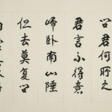 問君何所之
君言不得意
歸臥南山陲
但去莫復問